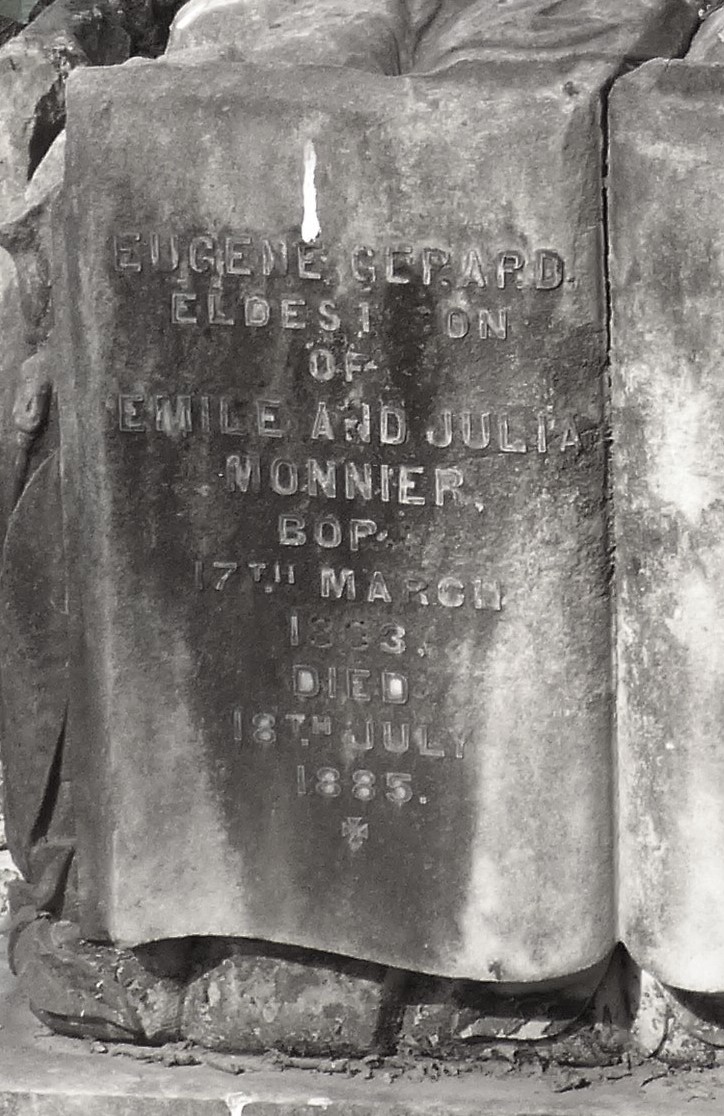 EUGENE GERARD.
ELDEST SON
OF
EMILE AND JULIA
MONNIER,
BOR
17TH MARCH
18
DIED
18TH JULY
1885.